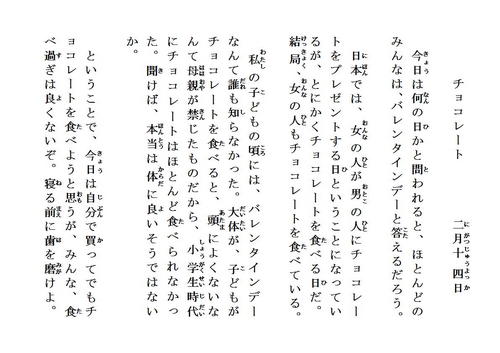 チョコレート　　二月十四日
今日は何の日かと問われると、ほとんどの
みんなは、バレンタインデーと答えるだろう。
日本では、女の人が男の人にチョコレー
トをプレゼントする日ということになってい
るが、とにかくチョコレートを食べる日だ。
結局、女の人もチョコレートを食べている。
私の子どもの頃には、バレンタインデー
なんて誰も知らなかった。大体が、子どもが
チョコレートを食べると、頭によくないな
んて母親が禁じたものだから、小学生時代
にチョコレートはほとんど食べられなかっ
た。聞けば、本当は体に良いそうではない
か。
ということで、今日は自分で買ってでもチ
ョコレートを食べようと思うが、みんな、食
べ過ぎは良くないぞ。寝る前に歯を磨けよ。